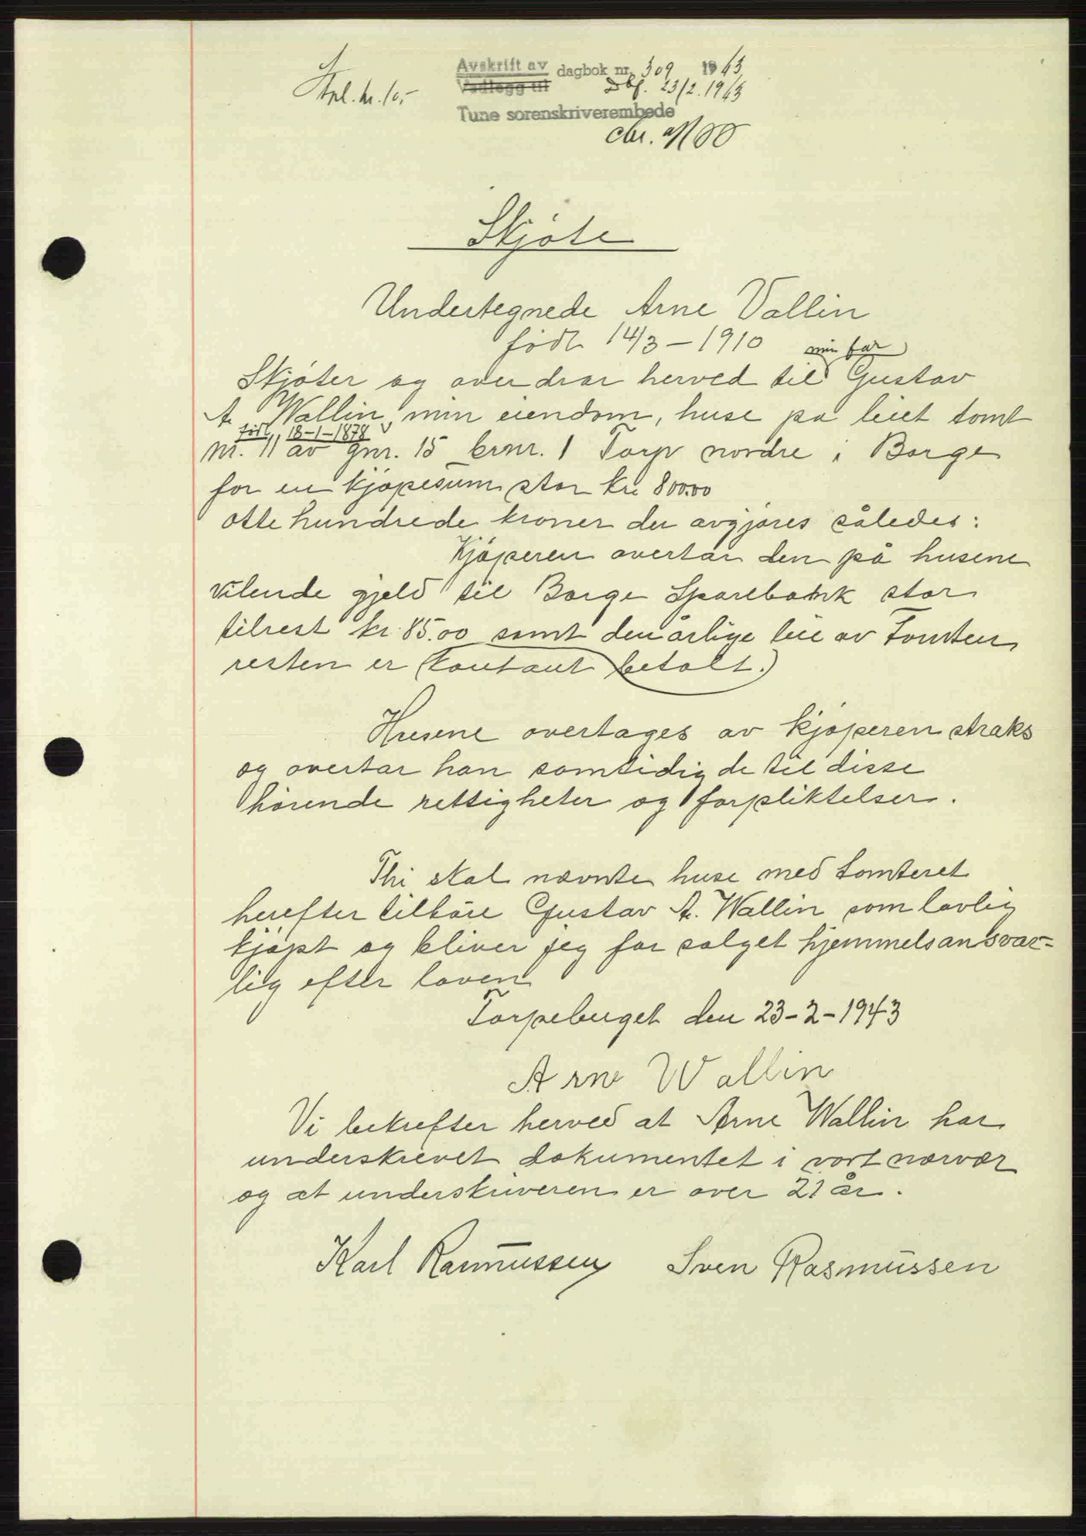 Stpl. kr. 10,-
Avskrift av dagbok nr. 309 1943
Vedlegg til Dbf. 23/2. 1943
Tune sorenskriverembede
Skjøte
Undertegnede Arne Vallin
født 14/3 - 1910
min far
Skjøter og overdrar herved til Gustav
A. Wallin, min eiendom, huse på leiet tomt
født 18-1-1878
nr. 11 av gnr. 15 brnr. 1 Torp nordre i Borge
for en kjøpesum stor kr. 800.00
otte hundrede kroner der avgjøres således:
Kjøperen overtar den på husene
vilende gjeld til Borge Sparebank stor
tilrest kr. 85.00 samt den årlige leie av Tomten
resten er kontant betalt.
Husene overtages av kjøperen straks
og overtar han samtidig de til disse
hørende rettigheter og forpliktelser.
Thi skal nævnte huse med tomteret
herefter tilhøre Gustav A. Wallin som lovlig
kjøpt og bliver jeg for salget hjemmelsansvar-
lig efter loven
Torpeberget den 23-2-1943
Arne Wallin
Vi bekrefter herved at Arne Wallin har
underskrevet dokumentet i vort nærvær
og at underskriveren er over 21 år.
Karl Rasmussen Sven Rasmussen